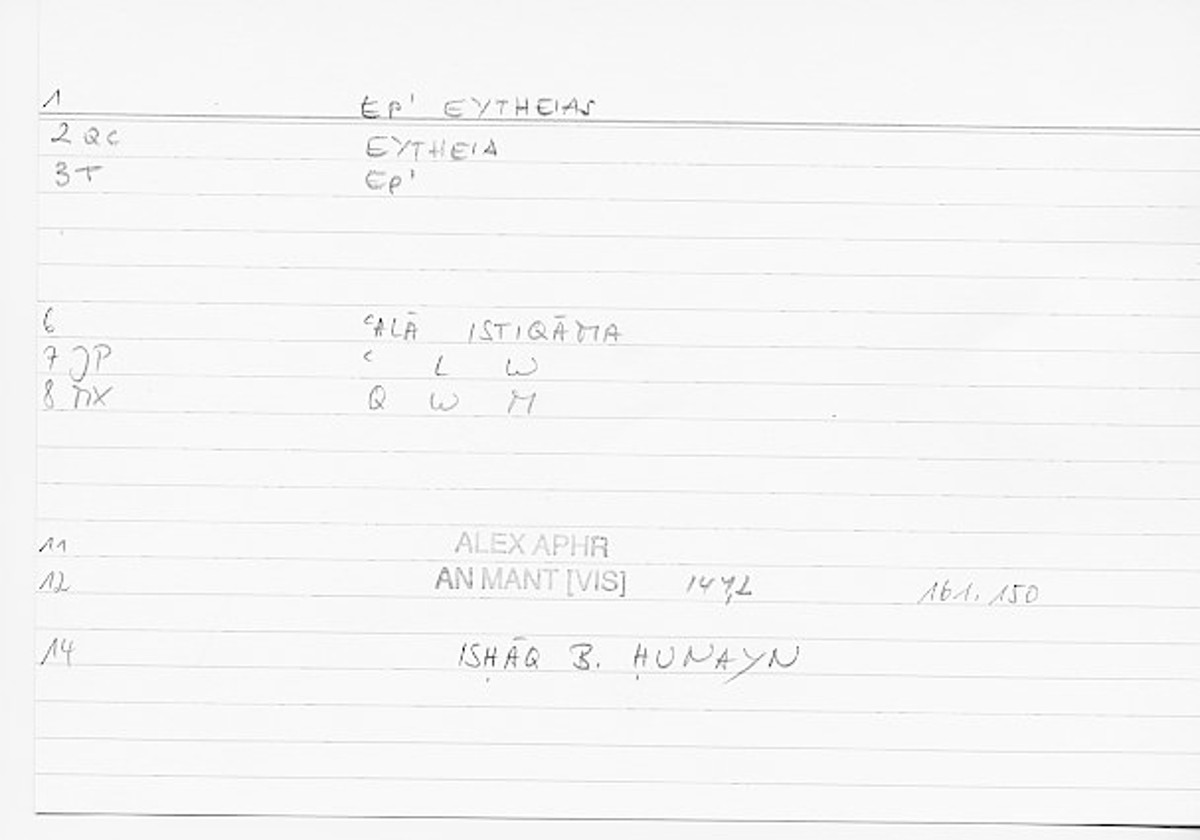 1 Ep' EYTHEIAS
2 QC EYTHEIA
3 T Ep'
6 ʿALĀ ISTIQĀMA
7 JP ʿ L W
8 MX Q W M
11 ALEX APHR
12 AN MANT [VIS] 147,2 161.150
14 ISḤĀQ B. ḤUNAYN